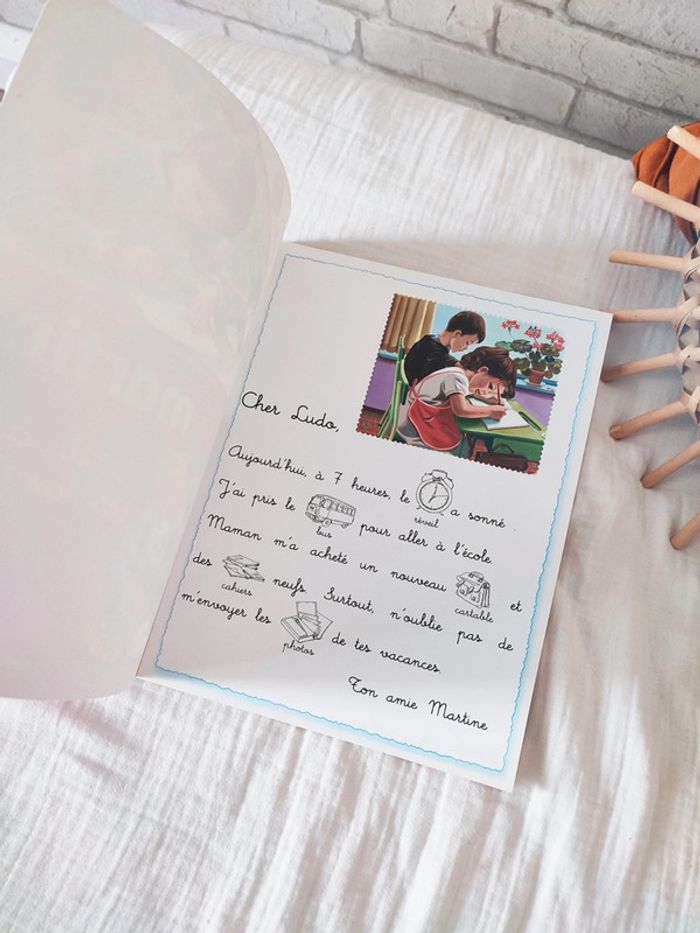 Cher Ludo,
Aujourd'hui, à 7 heures, le réveil a sonné.
J'ai pris le bus pour aller à l'école.
Maman m'a acheté un nouveau cartable et
des cahiers neufs. Surtout, n'oublie pas de
m'envoyer les photos de tes vacances.
Ton amie Martine